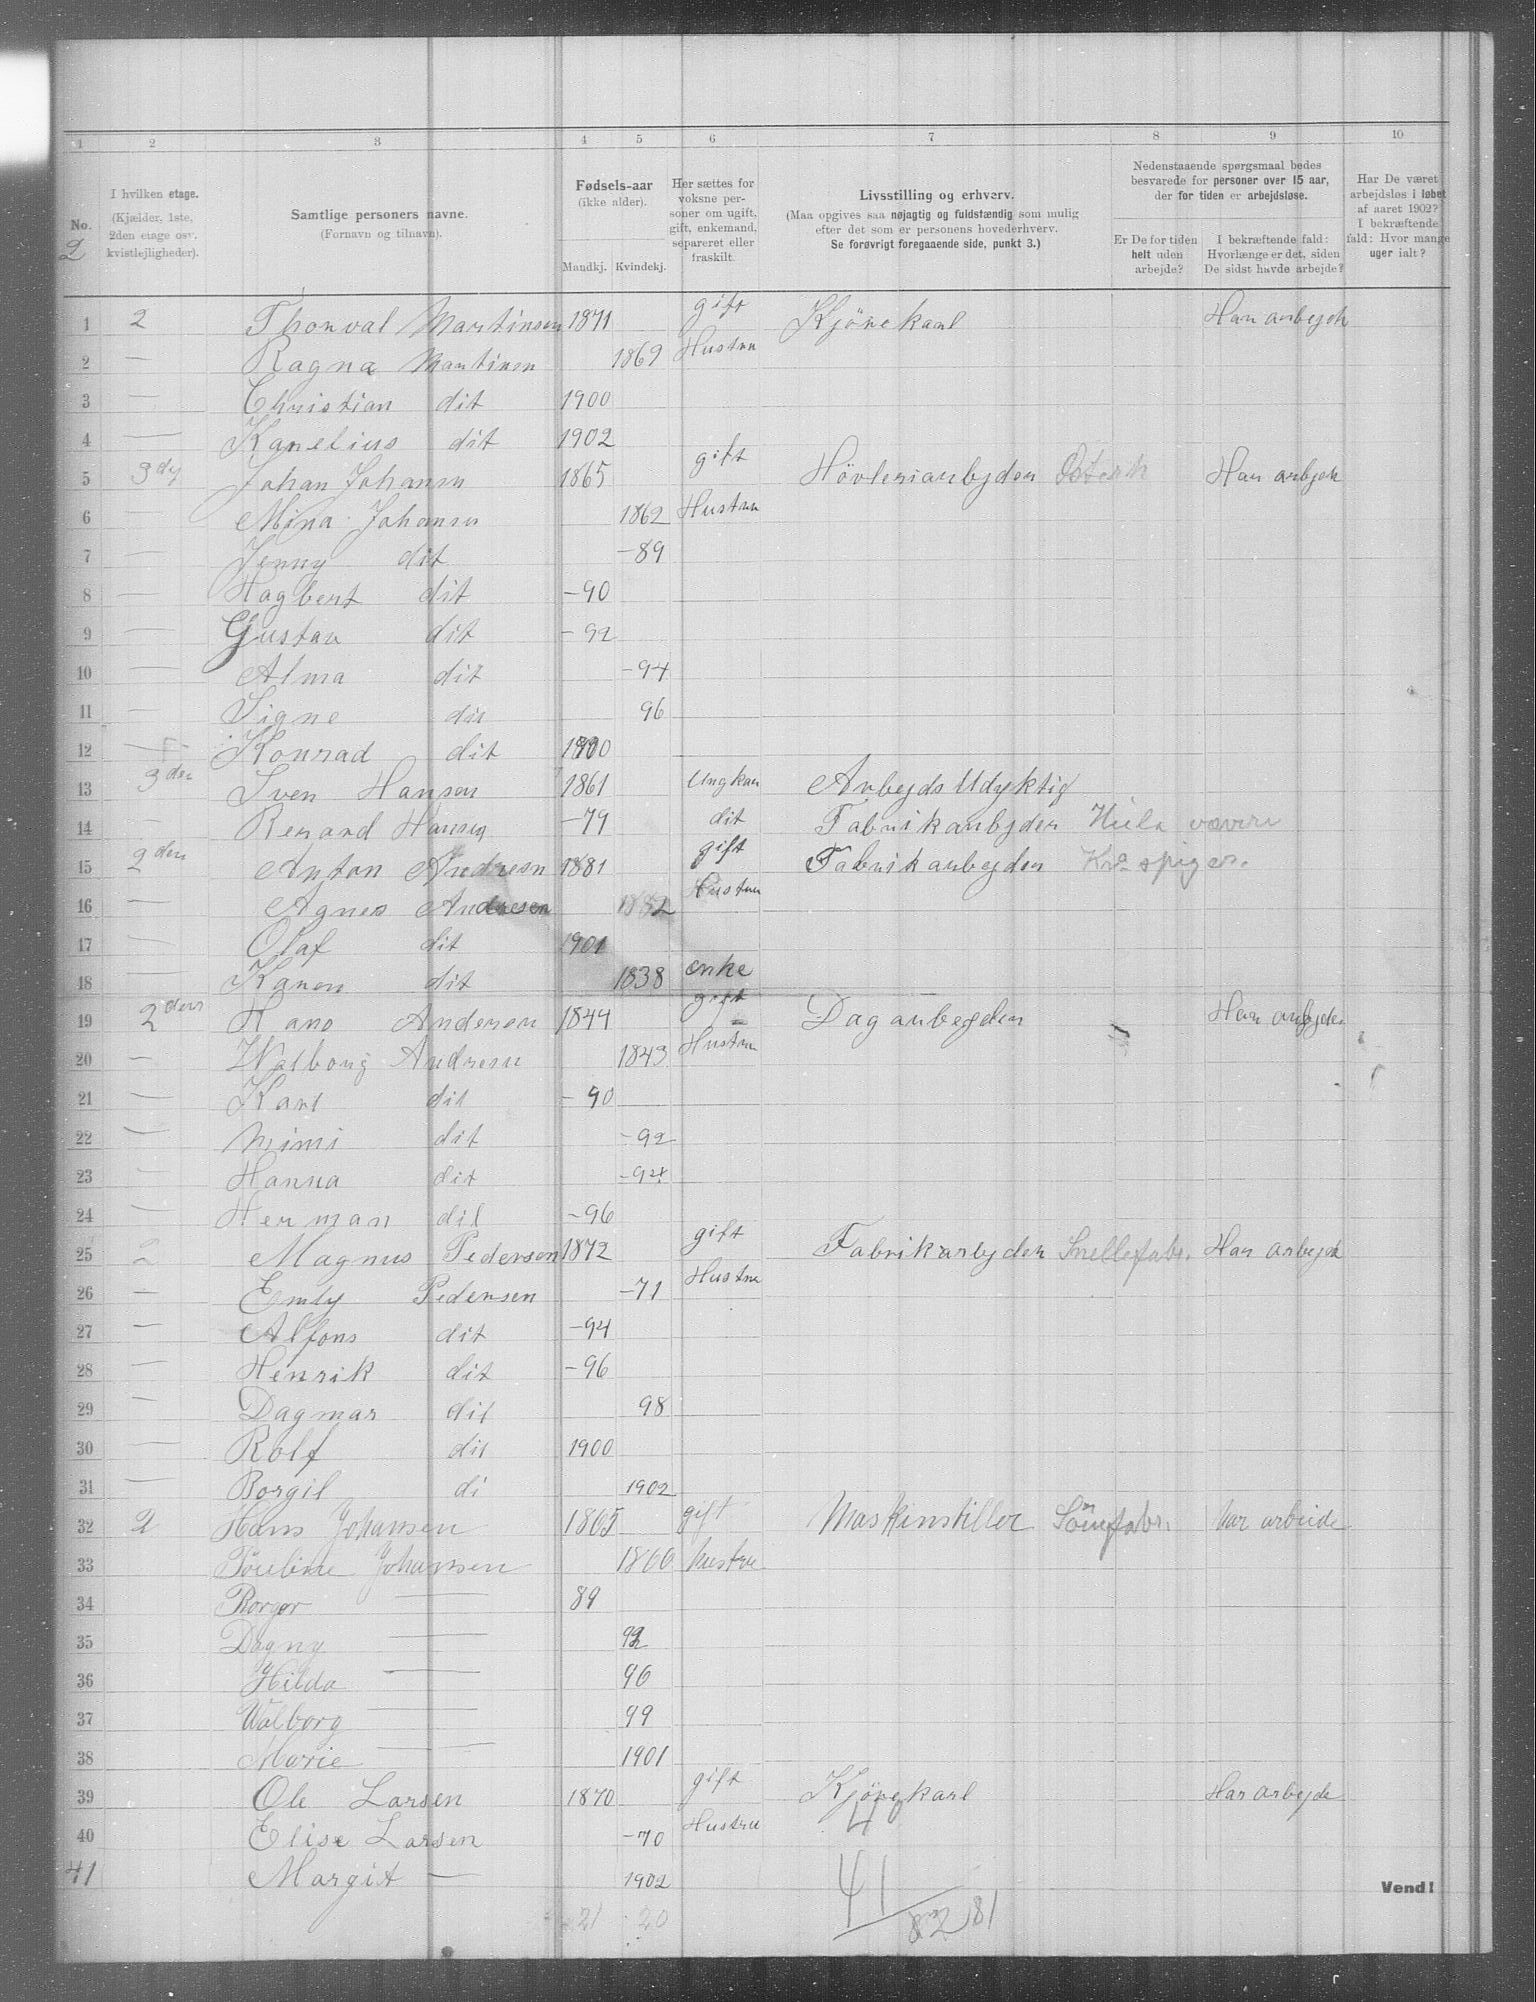 1 2 3 4 5 6 7 8 9 10
No. 2
I hvilken etage.
(Kjælder, 1ste,
2den etage osv.
kvistlejligheder).
Samtlige personers navne.
(Fornavn og tilnavn).
Fødsels-aar
(ikke alder).
Mandkj. Kvindekj.
Her sættes for
voksne per-
soner om ugift,
gift, enkemand,
separeret eller
fraskilt.
Livsstilling og erhverv.
(Maa opgives saa nøjagtig og fuldstændig som mulig
efter det som er personens hovederhverv.
Se forøvrigt foregaaende side, punkt 3.)
Nedenstaaende spørgsmaal bedes
besvarede for personer over 15 aar,
der for tiden er arbejdsløse.
Er De for tiden
helt uden
arbejde?
I bekræftende fald:
Hvorlænge er det, siden
De sidst havde arbejde?
Har De været
arbejdsløs i løbet
af aaret 1902?
I bekræftende
fald: Hvor mange
uger ialt?
1 2 Thorval Martinsen 1871 gift Kjörekarl Har arbejde
2 — Ragna Martinsen 1869 Hustru
3 — Christian dit 1900
4 — Karelius dit 1902
5 3dy Johan Johansen 1865 gift Hövleriarbejder Har arbejde
6 — Mina Johansen 1862 Hustru
7 — Jenny dit -89
8 — Hagbert dit -90
9 — Gustav dit -92
10 — Alma dit -94
11 — Signe dit 96
12 — Konrad dit 1900
13 3den Sven Hansen 1861 Ungkar Arbejds Udyktig
14 — Renard Hansen -79 dit Fabrikarbejder Hiula væveri
15 2den Anton Andresen 1881 gift Fabrikarbejder Kra spiger.
16 — Agnes Andresen 1882 Hustru
17 — Olaf dit 1901
18 — Karen dit 1838 enke
19 2den Hans Andersen 1844 gift Dagarbejder Har arbejde
20 — Walborg Andresen 1843 Hustru
21 — Karl dit -90
22 — Mimi dit -92
23 — Hanna dit -94
24 — Herman dit -96
25 2 Magnus Pedersen 1872 gift Fabrikarbejder Snellefabr. Har arbejde
26 — Emly Pedersen -71 Hustru
27 — Alfons dit -94
28 — Henrik dit -96
29 — Dagmar dit 98
30 — Rolf dit 1900
31 — Borgil di 1902
32 2 Hans Johansen 1865 gift Maskinstiller Sömfabr. har arbeide
33 Pouline Johansen 1866 hustru
34 Borger — 89
35 Dagny — 92
36 Hilda — 96
37 Valborg — 99
38 Marie — 1901
39 Ole Larsen 1870 gift Kjörekarl Har arbejde
40 Elise Larsen -70 Hustru 40
41 Margit — 1902 41
Vend!
21 20 82 81